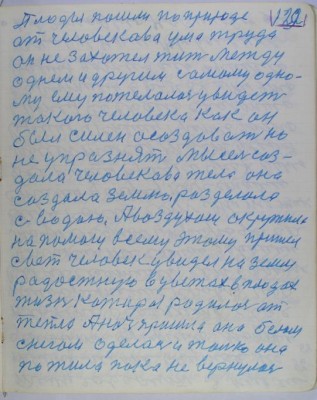 122
И люди пошли по природе
от человекава ума труда
он не захотел жит между
однем и другим самому одно-
му ему пожелалос увидет
такого человека как он
был силен а создоват но
не упразнят мысел соз-
дала человекава тело она
создала землю, разделала
с водою, А воздухом окружила
на помогу всему этому пришел
свет человек увидел на земли
радостную в цветах в плодах
жизн каторая родилас от
тепло А ноч пришла она белым
снегом оделас и толко она
пожила пока не вернулас